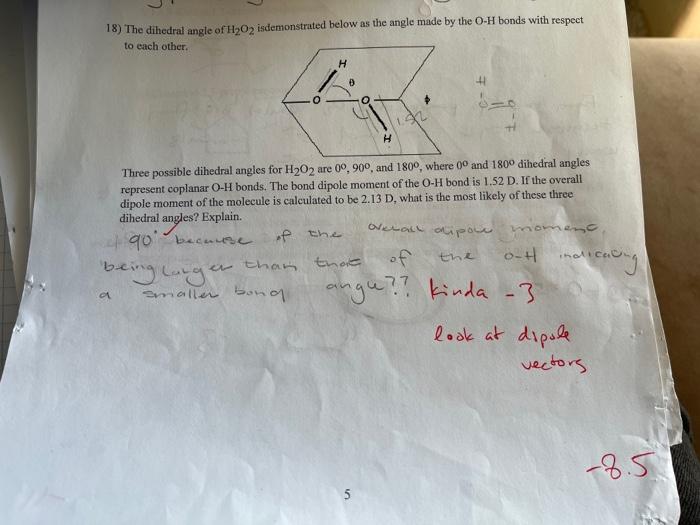 18) The dihedral angle of H2O2 isdemonstrated below as the angle made by the O-H bonds with respect
to each other.
H
θ
O
O
ϕ
1.52
H
H
O=O
H
Three possible dihedral angles for H2O2 are 0⁰, 90⁰, and 180⁰, where 0⁰ and 180⁰ dihedral angles
represent coplanar O-H bonds. The bond dipole moment of the O-H bond is 1.52 D. If the overall
dipole moment of the molecule is calculated to be 2.13 D, what is the most likely of these three
dihedral angles? Explain.
90° because of the overall dipole moment
being larger than that of the O-H indicating
a smaller bond angle?? Kinda -3
look at dipole
vectors
-8.5
5